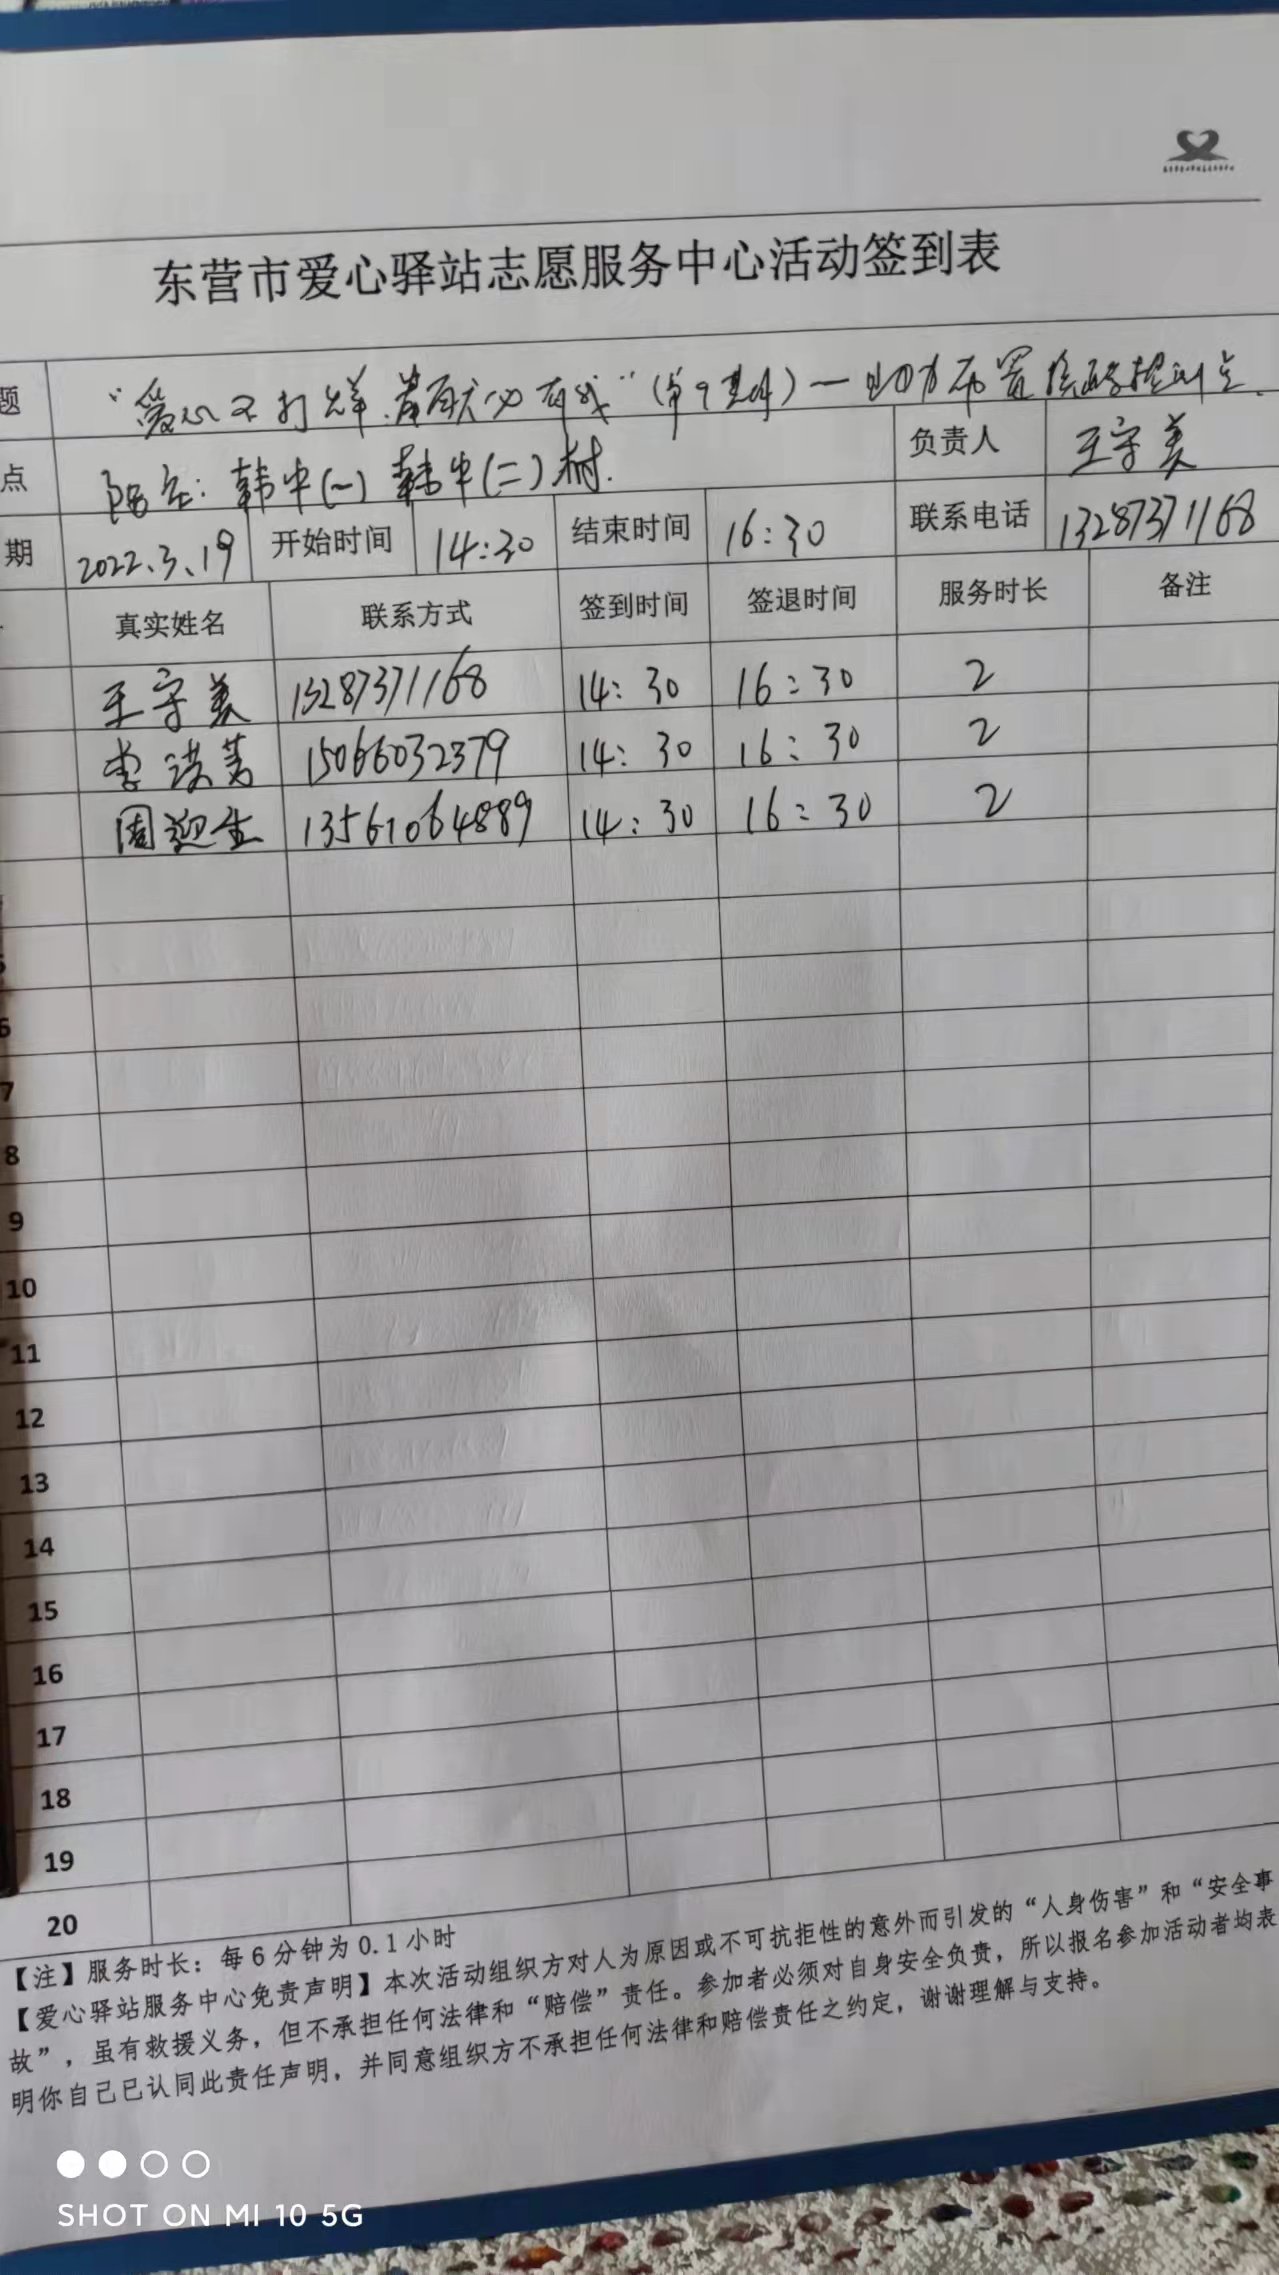 东营市爱心驿站志愿服务中心活动签到表
题 "爱心不打烊.葦献必有我"(第9期)一助力布置核酸检测点.
点 陌庄:韩中(一)韩中(二)村. 负责人 王守美
期 2022.3.19 开始时间 14:30 结束时间 16:30 联系电话 13287371168
真实姓名 联系方式 签到时间 签退时间 服务时长 备注
王守美 13287371168 14:30 16:30 2
李洪菁 15066032379 14:30 16:30 2
周迎生 13561064889 14:30 16:30 2
6
7
8
9
10
11
12
13
14
15
16
17
18
19
20
【注】服务时长:每6分钟为0.1小时
【爱心驿站服务中心免责声明】本次活动组织方对人为原因或不可抗拒性的意外而引发的"人身伤害"和"安全事
故",虽有救援义务,但不承担任何法律和"赔偿"责任。参加者必须对自身安全负责,所以报名参加活动者均表
明你自己已认同此责任声明,并同意组织方不承担任何法律和赔偿责任之约定,谢谢理解与支持。
SHOT ON MI 10 5G